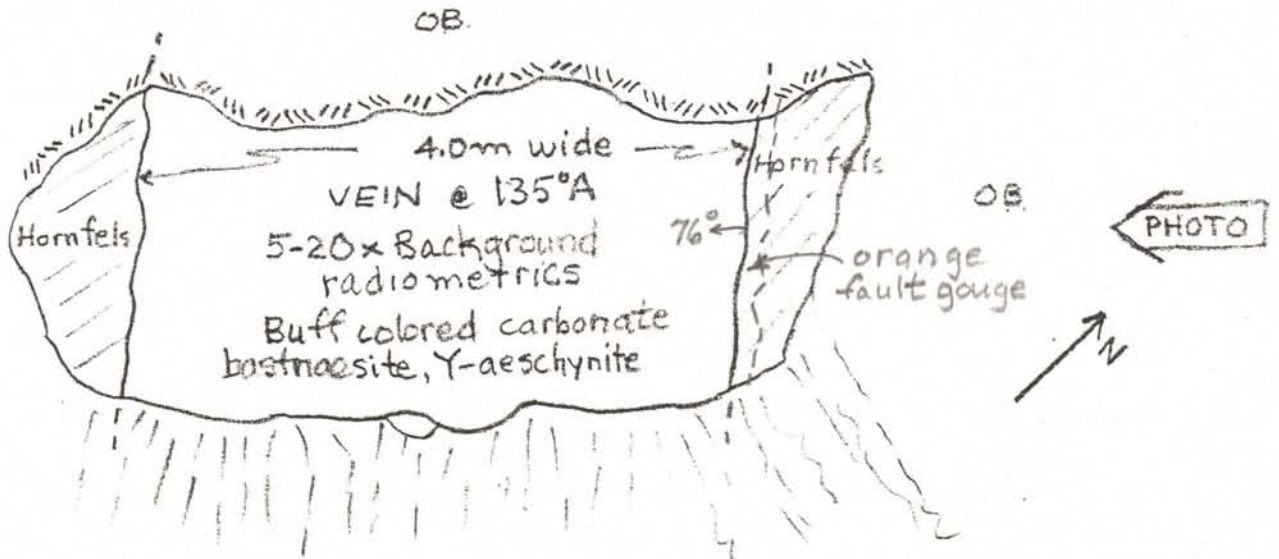 OB.
4.0m wide
VEIN @ 135°A
5-20x Background
radiometrics
Buff colored carbonate
bastnaesite, Y-aeschynite
Hornfels
Hornfels
76°
orange
fault gouge
OB.
PHOTO
N